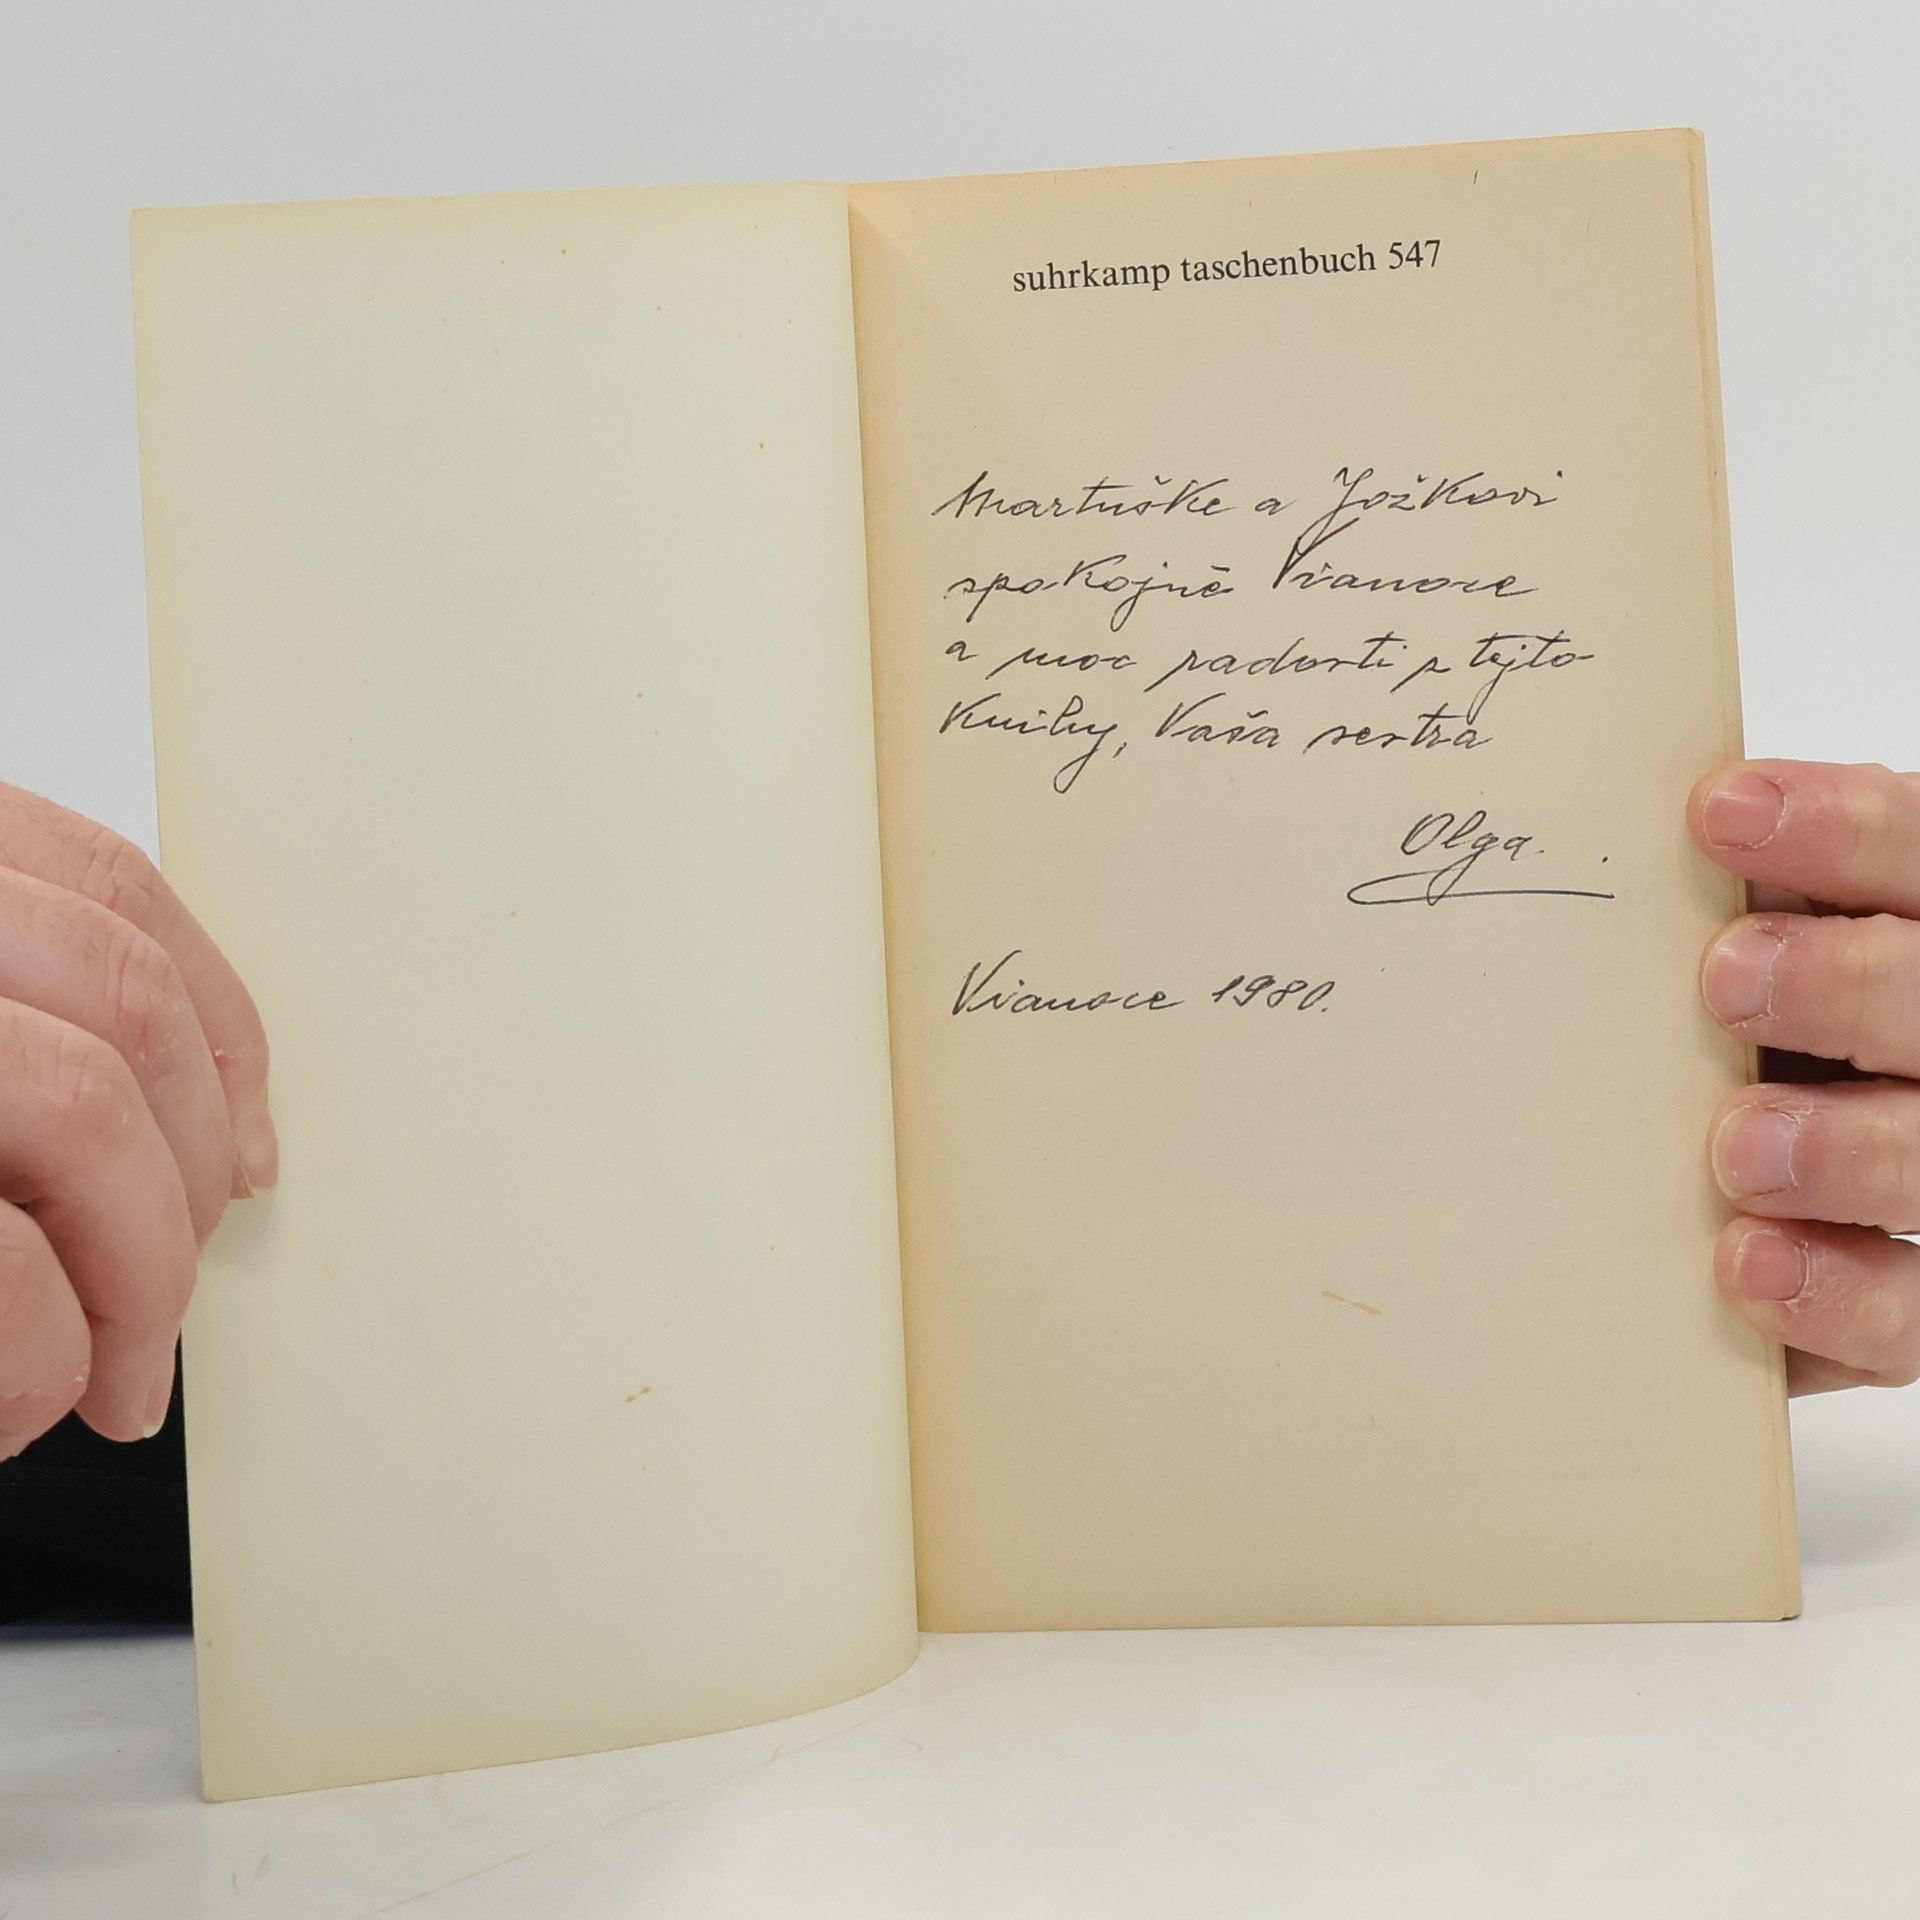 suhrkamp taschenbuch 547
Martuške a Jožkovi
spokojné Vianoce
a moc radosti z tejto
knihy, Vaša sestra
Olga.
Vianoce 1980.